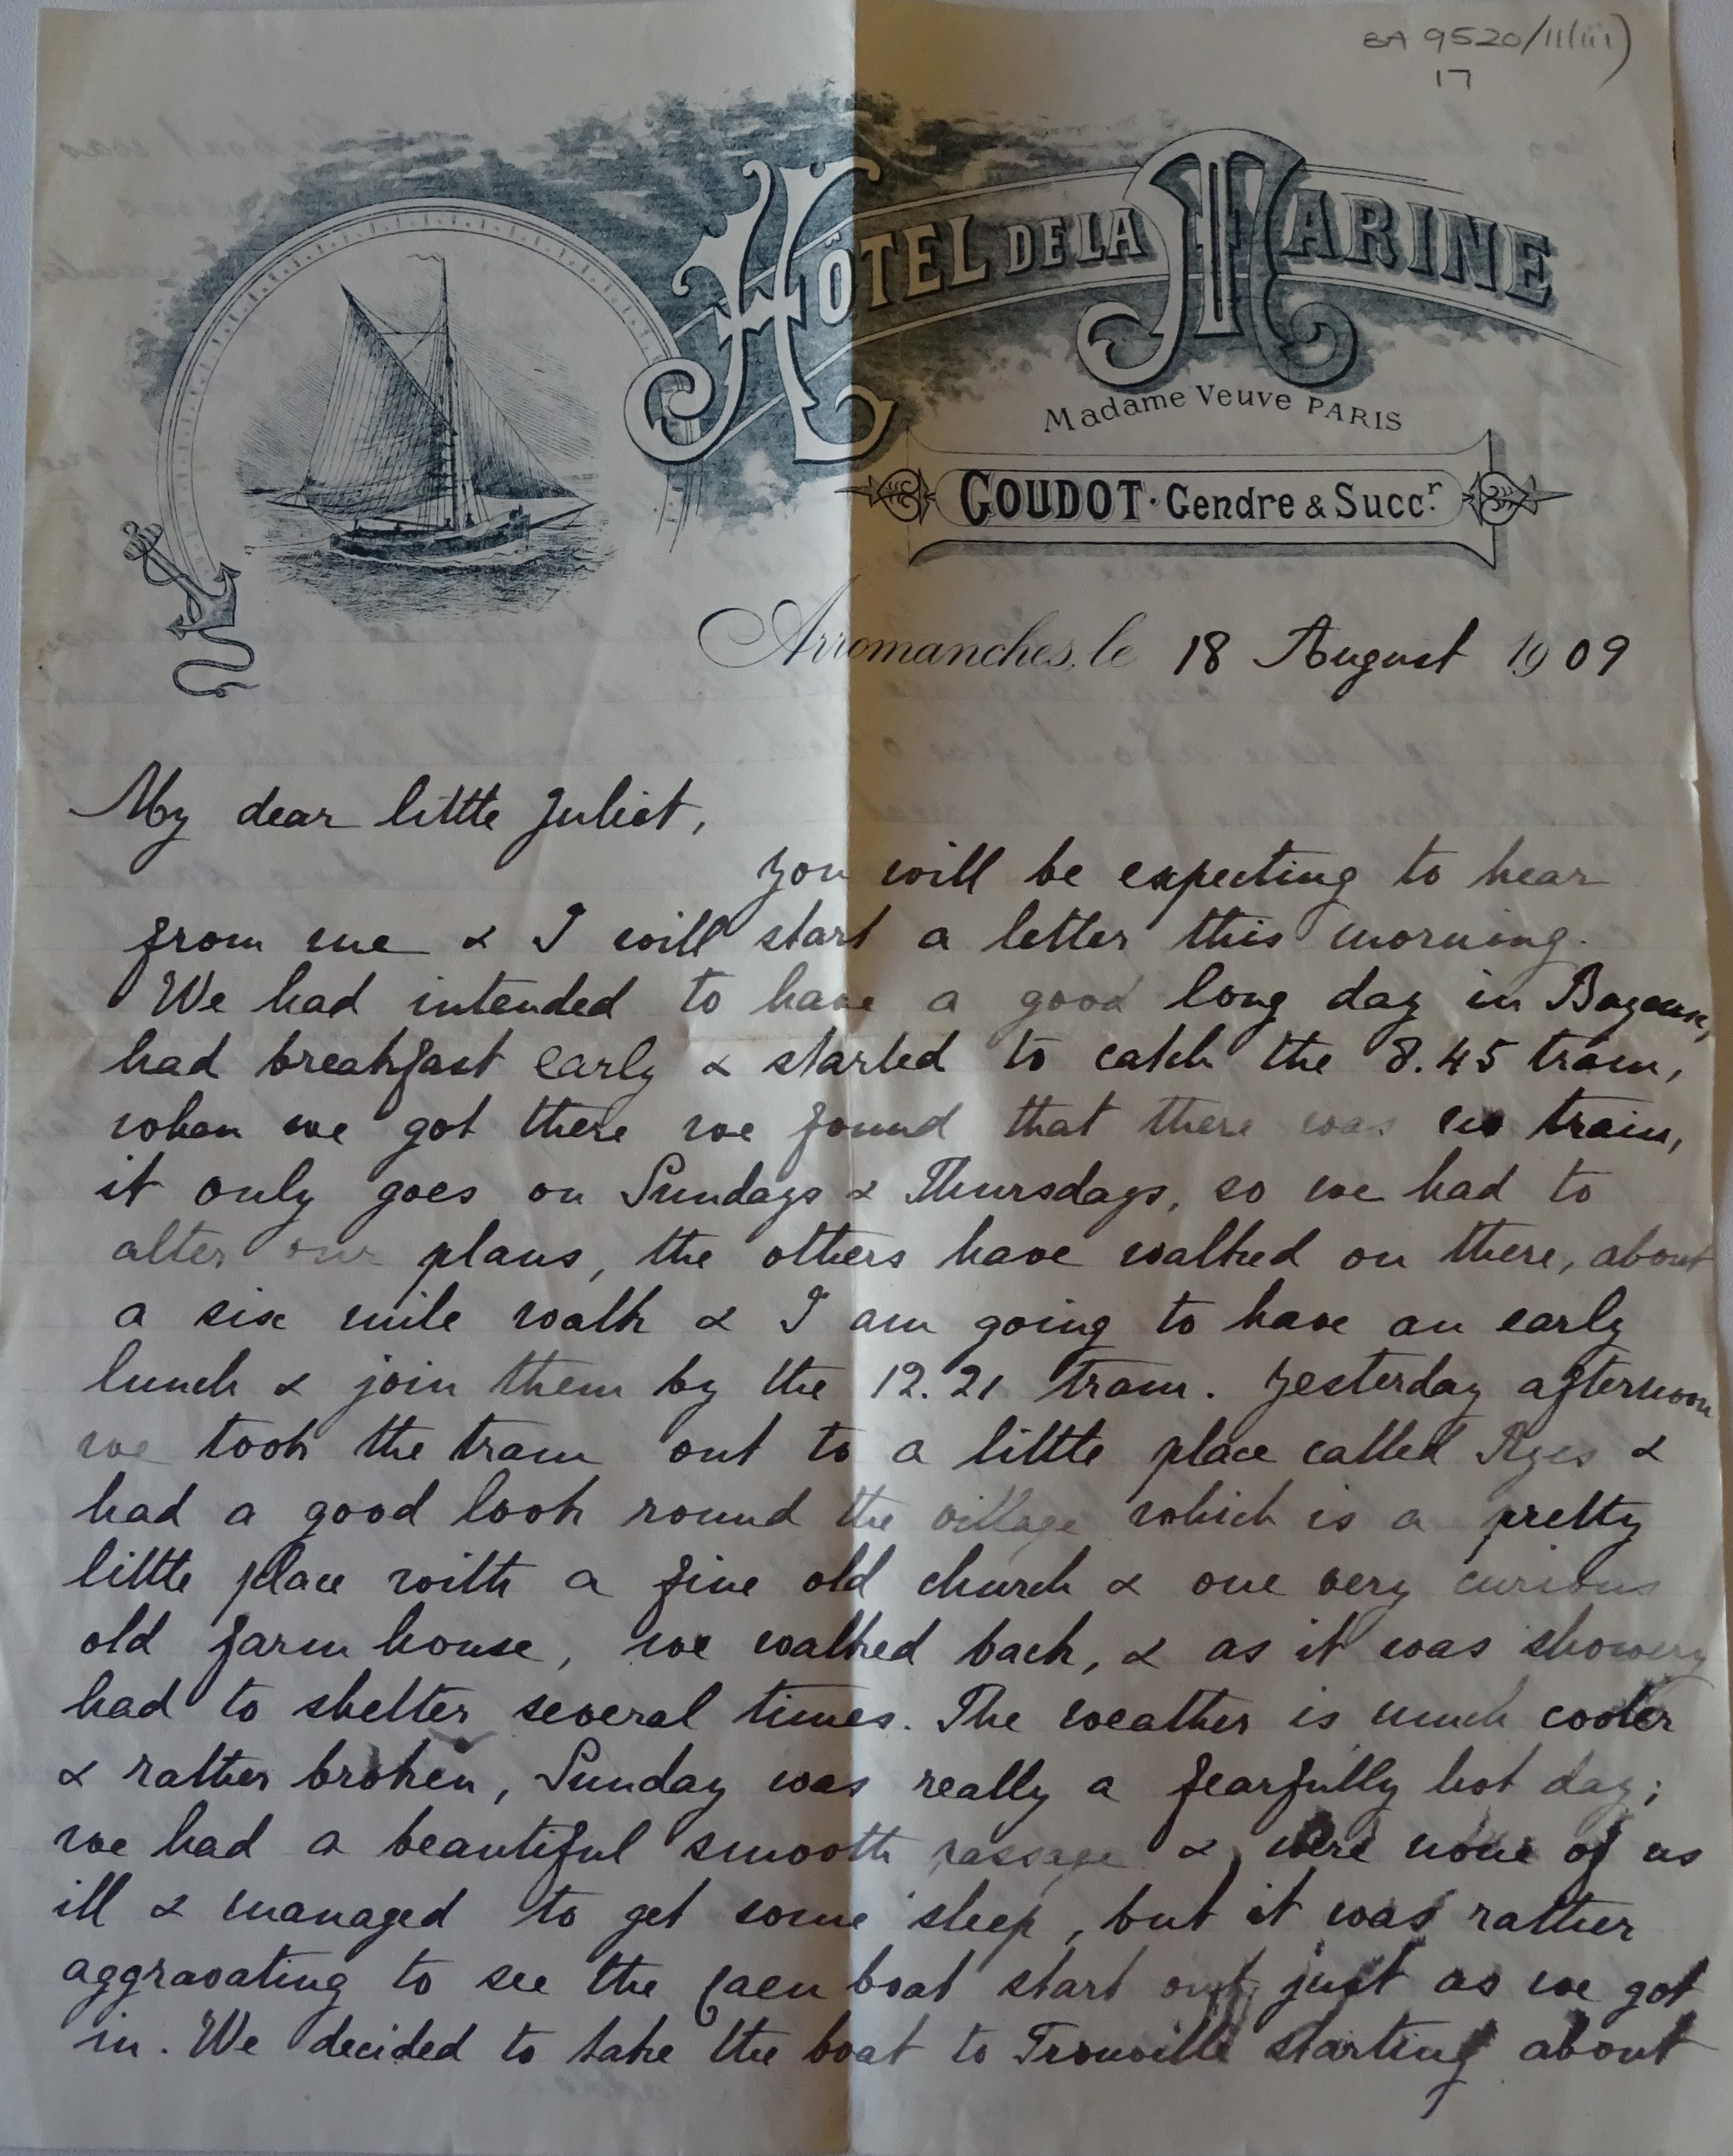 BA 9520/11(iii)
17
HÔTEL DE LA MARINE
Madame Veuve PARIS
GOUDOT · Gendre & Succr.
Arromanches, le 18 August 1909
My dear little Juliet,
you will be expecting to hear
from me & I will start a letter this morning.
We had intended to have a good long day in Bayeux,
had breakfast early & started to catch the 8.45 tram,
when we got there we found that there was no tram,
it only goes on Sundays & Thursdays, so we had to
alter our plans, the others have walked on there, about
a six mile walk & I am going to have an early
lunch & join them by the 12.21 tram. Yesterday afternoon
we took the tram out to a little place called Ryes &
had a good look round the village which is a pretty
little place with a fine old church & one very curious
old farm house, we walked back, & as it was showery
had to shelter several times. The weather is much cooler
& rather broken, Sunday was really a fearfully hot day;
we had a beautiful smooth passage & were none of us
ill & managed to get some sleep, but it was rather
aggravating to see the Caen boat start out just as we got
in. We decided to take the boat to Trouville starting about